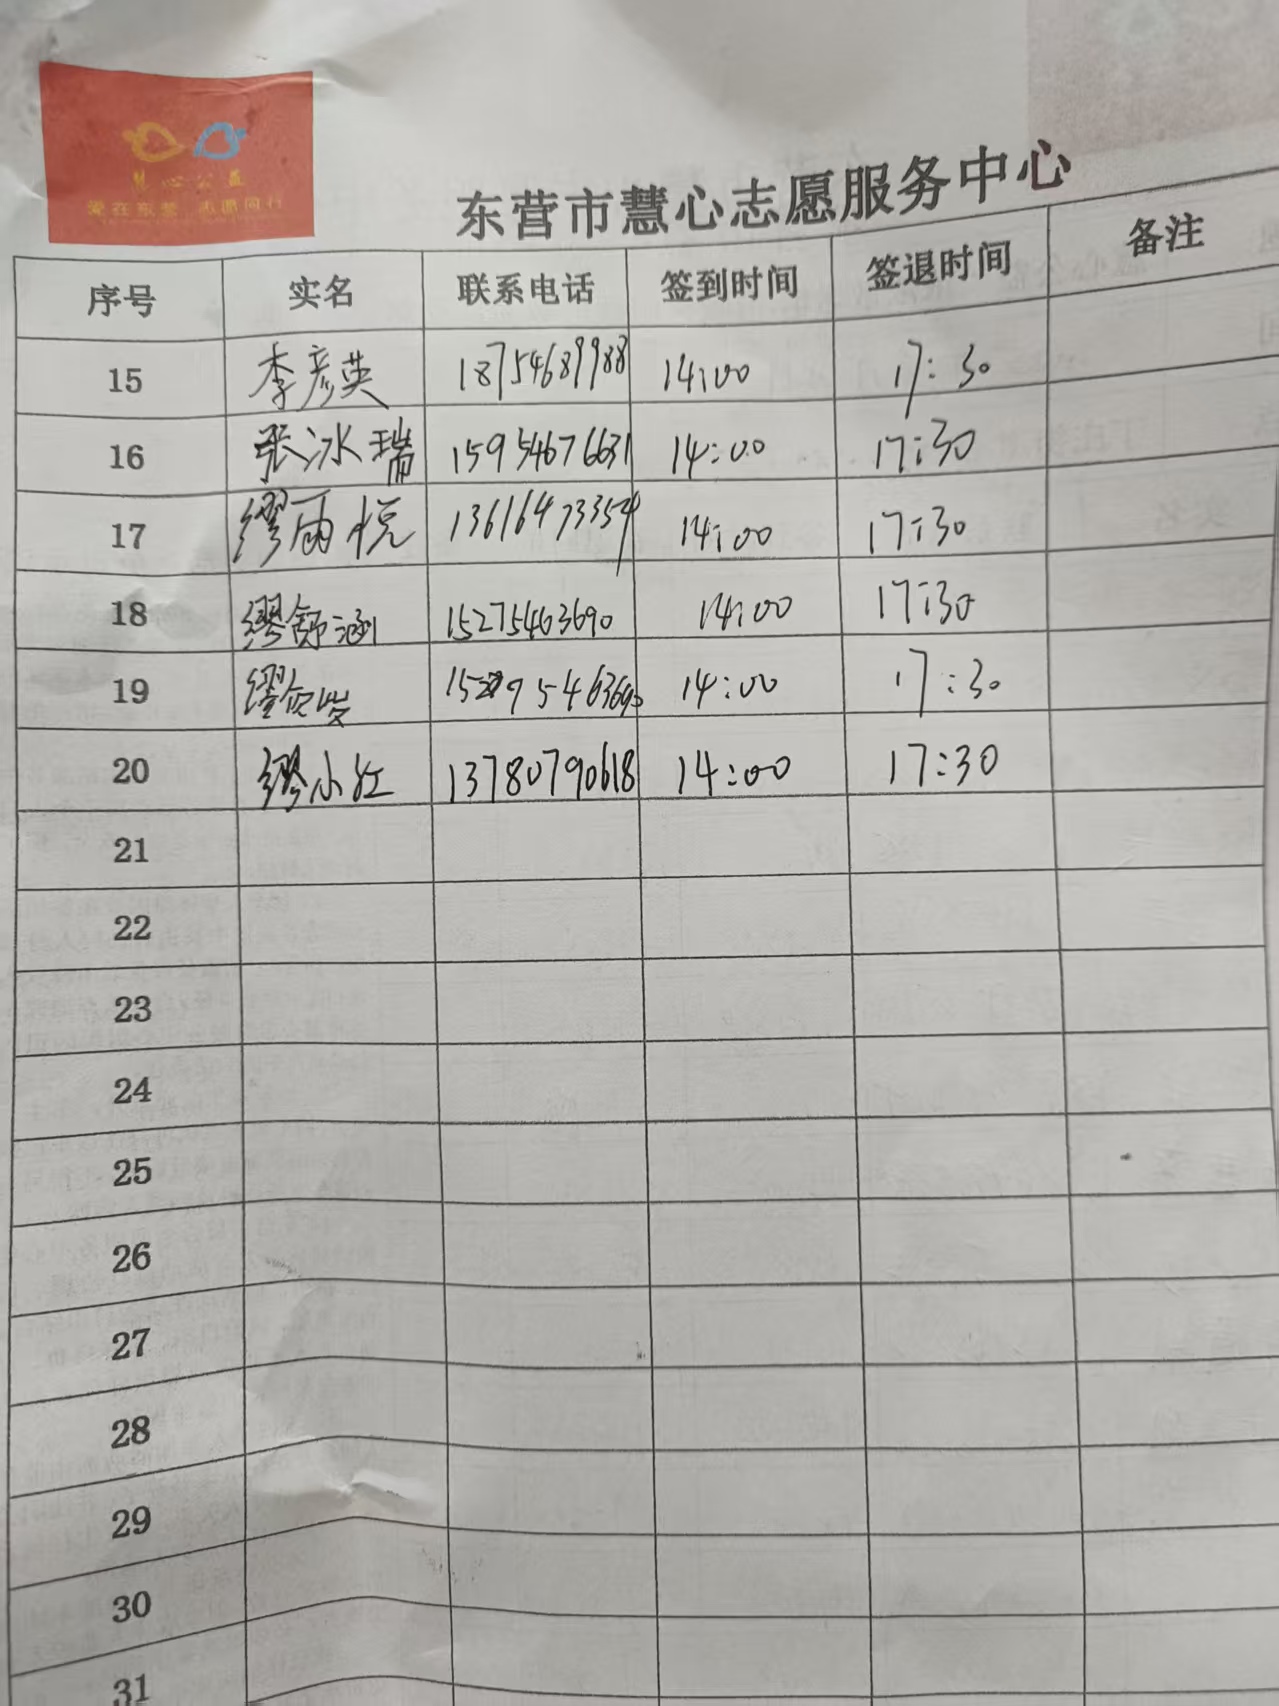 慧心公益
爱在东营 志愿同行
东营市慧心志愿服务中心
序号 实名 联系电话 签到时间 签退时间 备注
15 李彦英 18754689988 14:00 17:30
16 张冰瑞 15954676631 14:00 17:30
17 缪雨悦 13616473354 14:00 17:30
18 缪舒涵 15275463690 14:00 17:30
19 缪 14:00 17:30
20 缪小红 13780790618 14:00 17:30
21
22
23
24
25
26
27
28
29
30
31